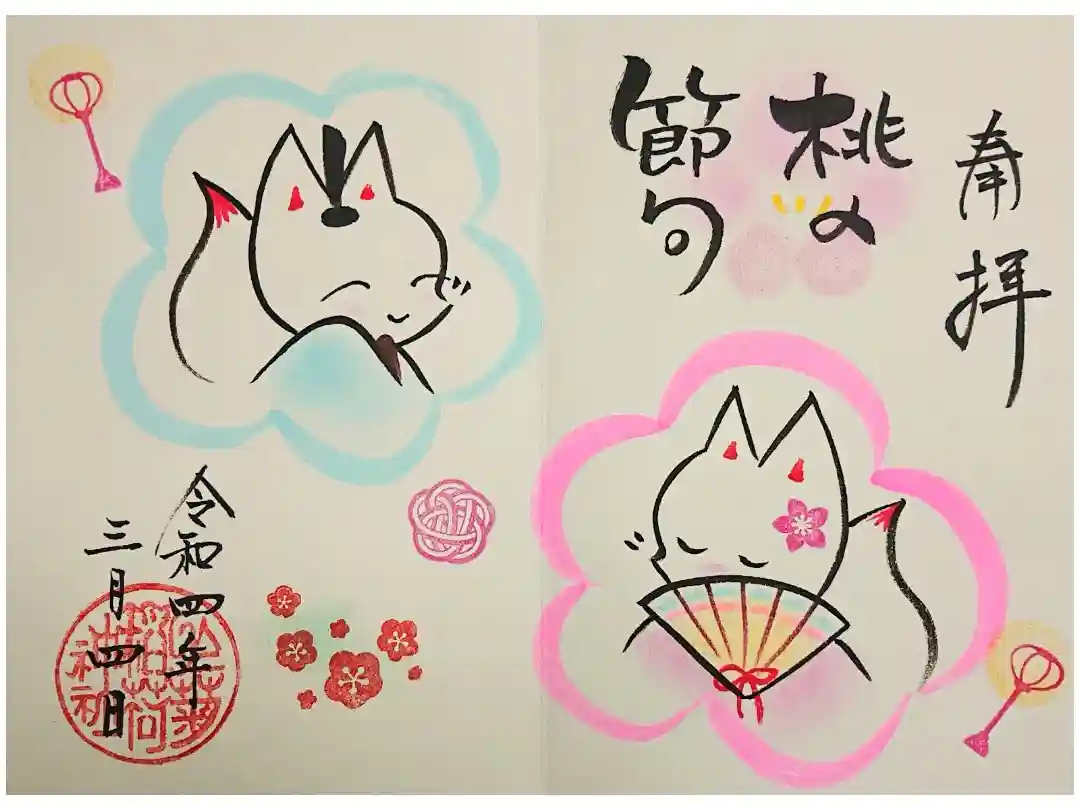 奉拝
桃の
節句
令和四年
三月四日
稲荷
神社